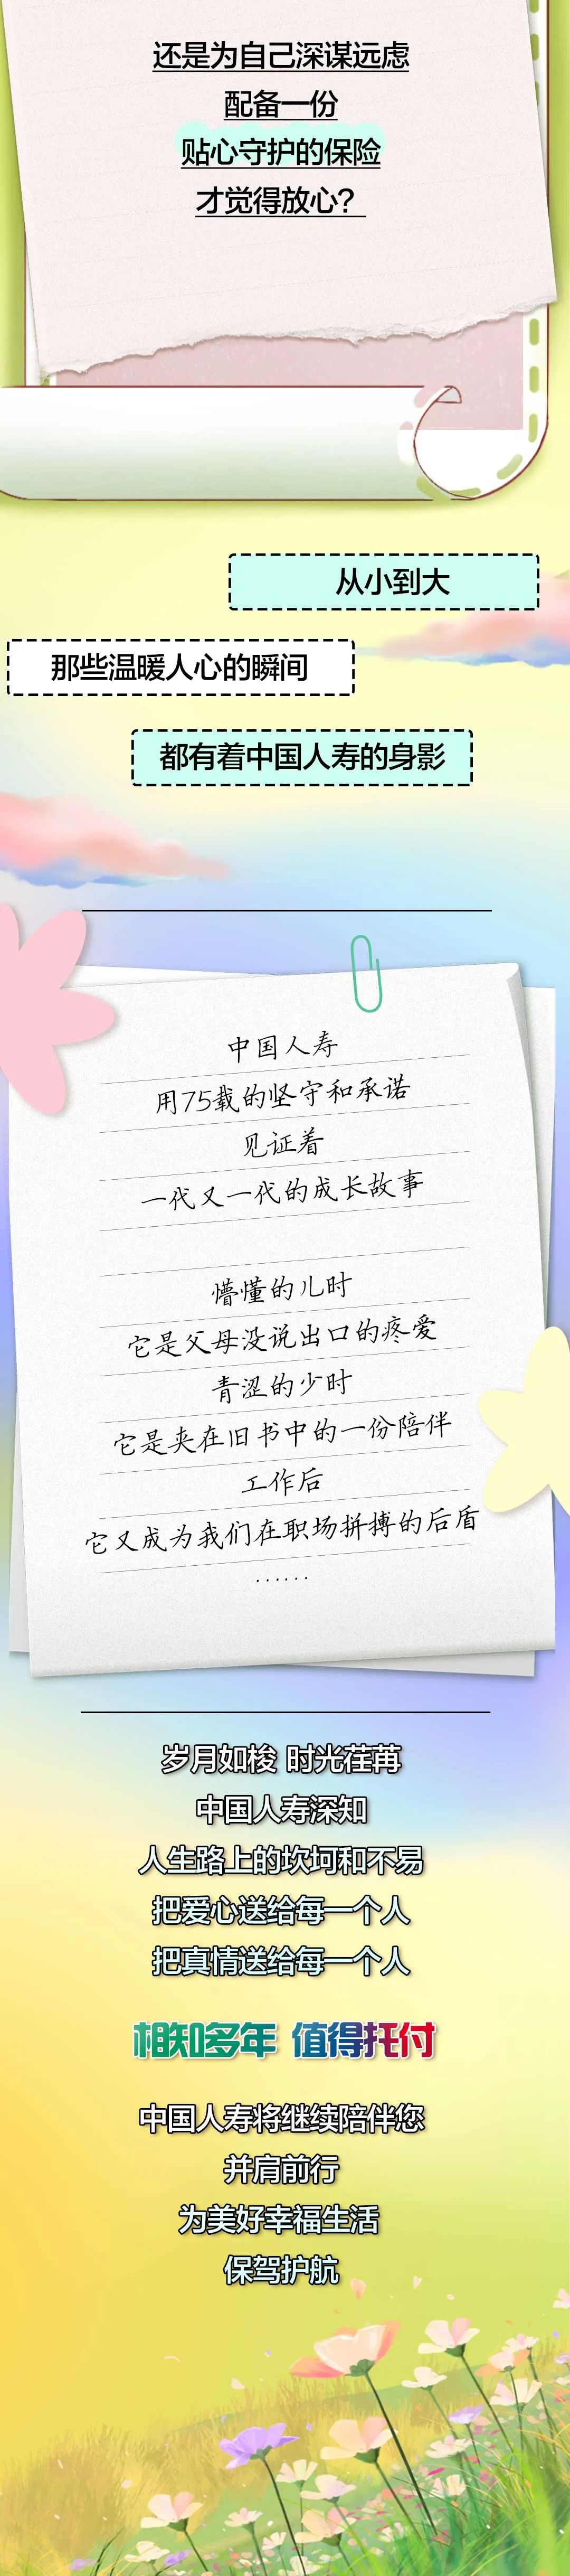 还是为自己深谋远虑
配备一份
贴心守护的保险
才觉得放心?
从小到大
那些温暖人心的瞬间
都有着中国人寿的身影
中国人寿
用75载的坚守和承诺
见证着
一代又一代的成长故事
懵懂的儿时
它是父母没说出口的疼爱
青涩的少时
它是夹在旧书中的一份陪伴
工作后
它又成为我们在职场拼搏的后盾
······
岁月如梭 时光荏苒
中国人寿深知
人生路上的坎坷和不易
把爱心送给每一个人
把真情送给每一个人
相知多年 值得托付
中国人寿将继续陪伴您
并肩前行
为美好幸福生活
保驾护航